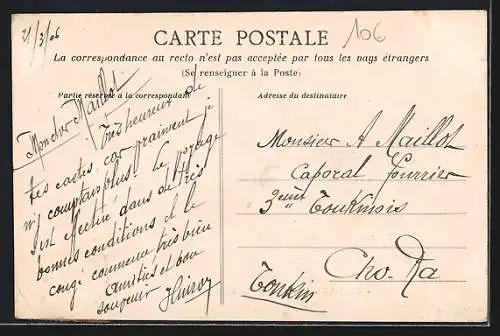 21/3/06
106
CARTE POSTALE
La correspondance au recto n'est pas acceptée par tous les pays étrangers
(Se renseigner à la Poste)
Partie réservée à la correspondant
Mon cher Maillot
Très heureux de
tes cartes car vraiment je
n'y comptais plus. Le voyage
s'est effectué dans de très
bonnes conditions et le
congé commence très bien
Amitiés et bon
souvenir
Adresse du destinataire
Monsieur A Maillot
Caporal Fourrier
3eme Tonkinois
Cho-Ra
Tonkin